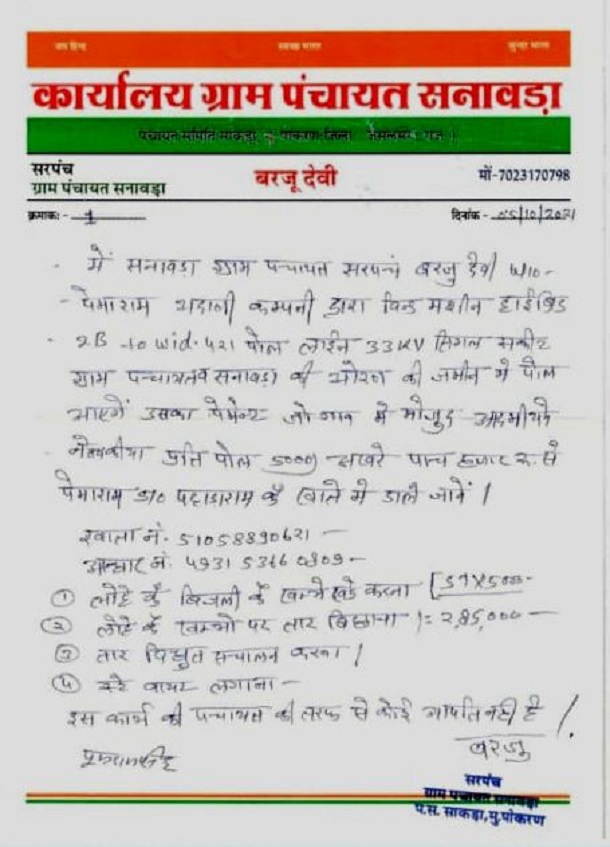 जय हिन्द स्वच्छ भारत सुन्दर भारत
कार्यालय ग्राम पंचायत सनावडा
पंचायत समिति साकड़ा, पोकरण जिला जैसलमेर राज.
सरपंच
ग्राम पंचायत सनावडा
बरजू देवी
मों-7023170798
क्रमांक:- 1
दिनांक - 05/10/2021
में सनावडा ग्राम पंचायत सरपंच बरजु देवी W/O-
पेमाराम अदाणी कम्पनी द्वारा विन्ड मशीन हाईब्रिड
पोल लाईन 33KV सिगल सर्कीट
ग्राम सनावडा की की जमीन मे पोल
आएगें उसका पेमेन्ट जो गाव मे मौजुद
प्रति पोल 5000) अखरे पाच हजार रू. से
पेमाराम S/o पहाडाराम के खाते मे डाले जावें।
खाता नं. 51058890621 -
आधार नं. 4931 5366 0809-
① लोहे के बिजली के खम्भे खडे करना [57X5000-
② लोहे के खम्भो पर तार बिछाना ।= 2,85,000 -
③ तार विधुत संचालन करना।
④ स्टे वायर लगाना -
इस कार्य की पंचायत की तरफ से कोई आपति नही है।
बरजु
सरपंच
ग्राम पंचायत सनावडा
पं.स. साकड़ा, मु.पोकरण